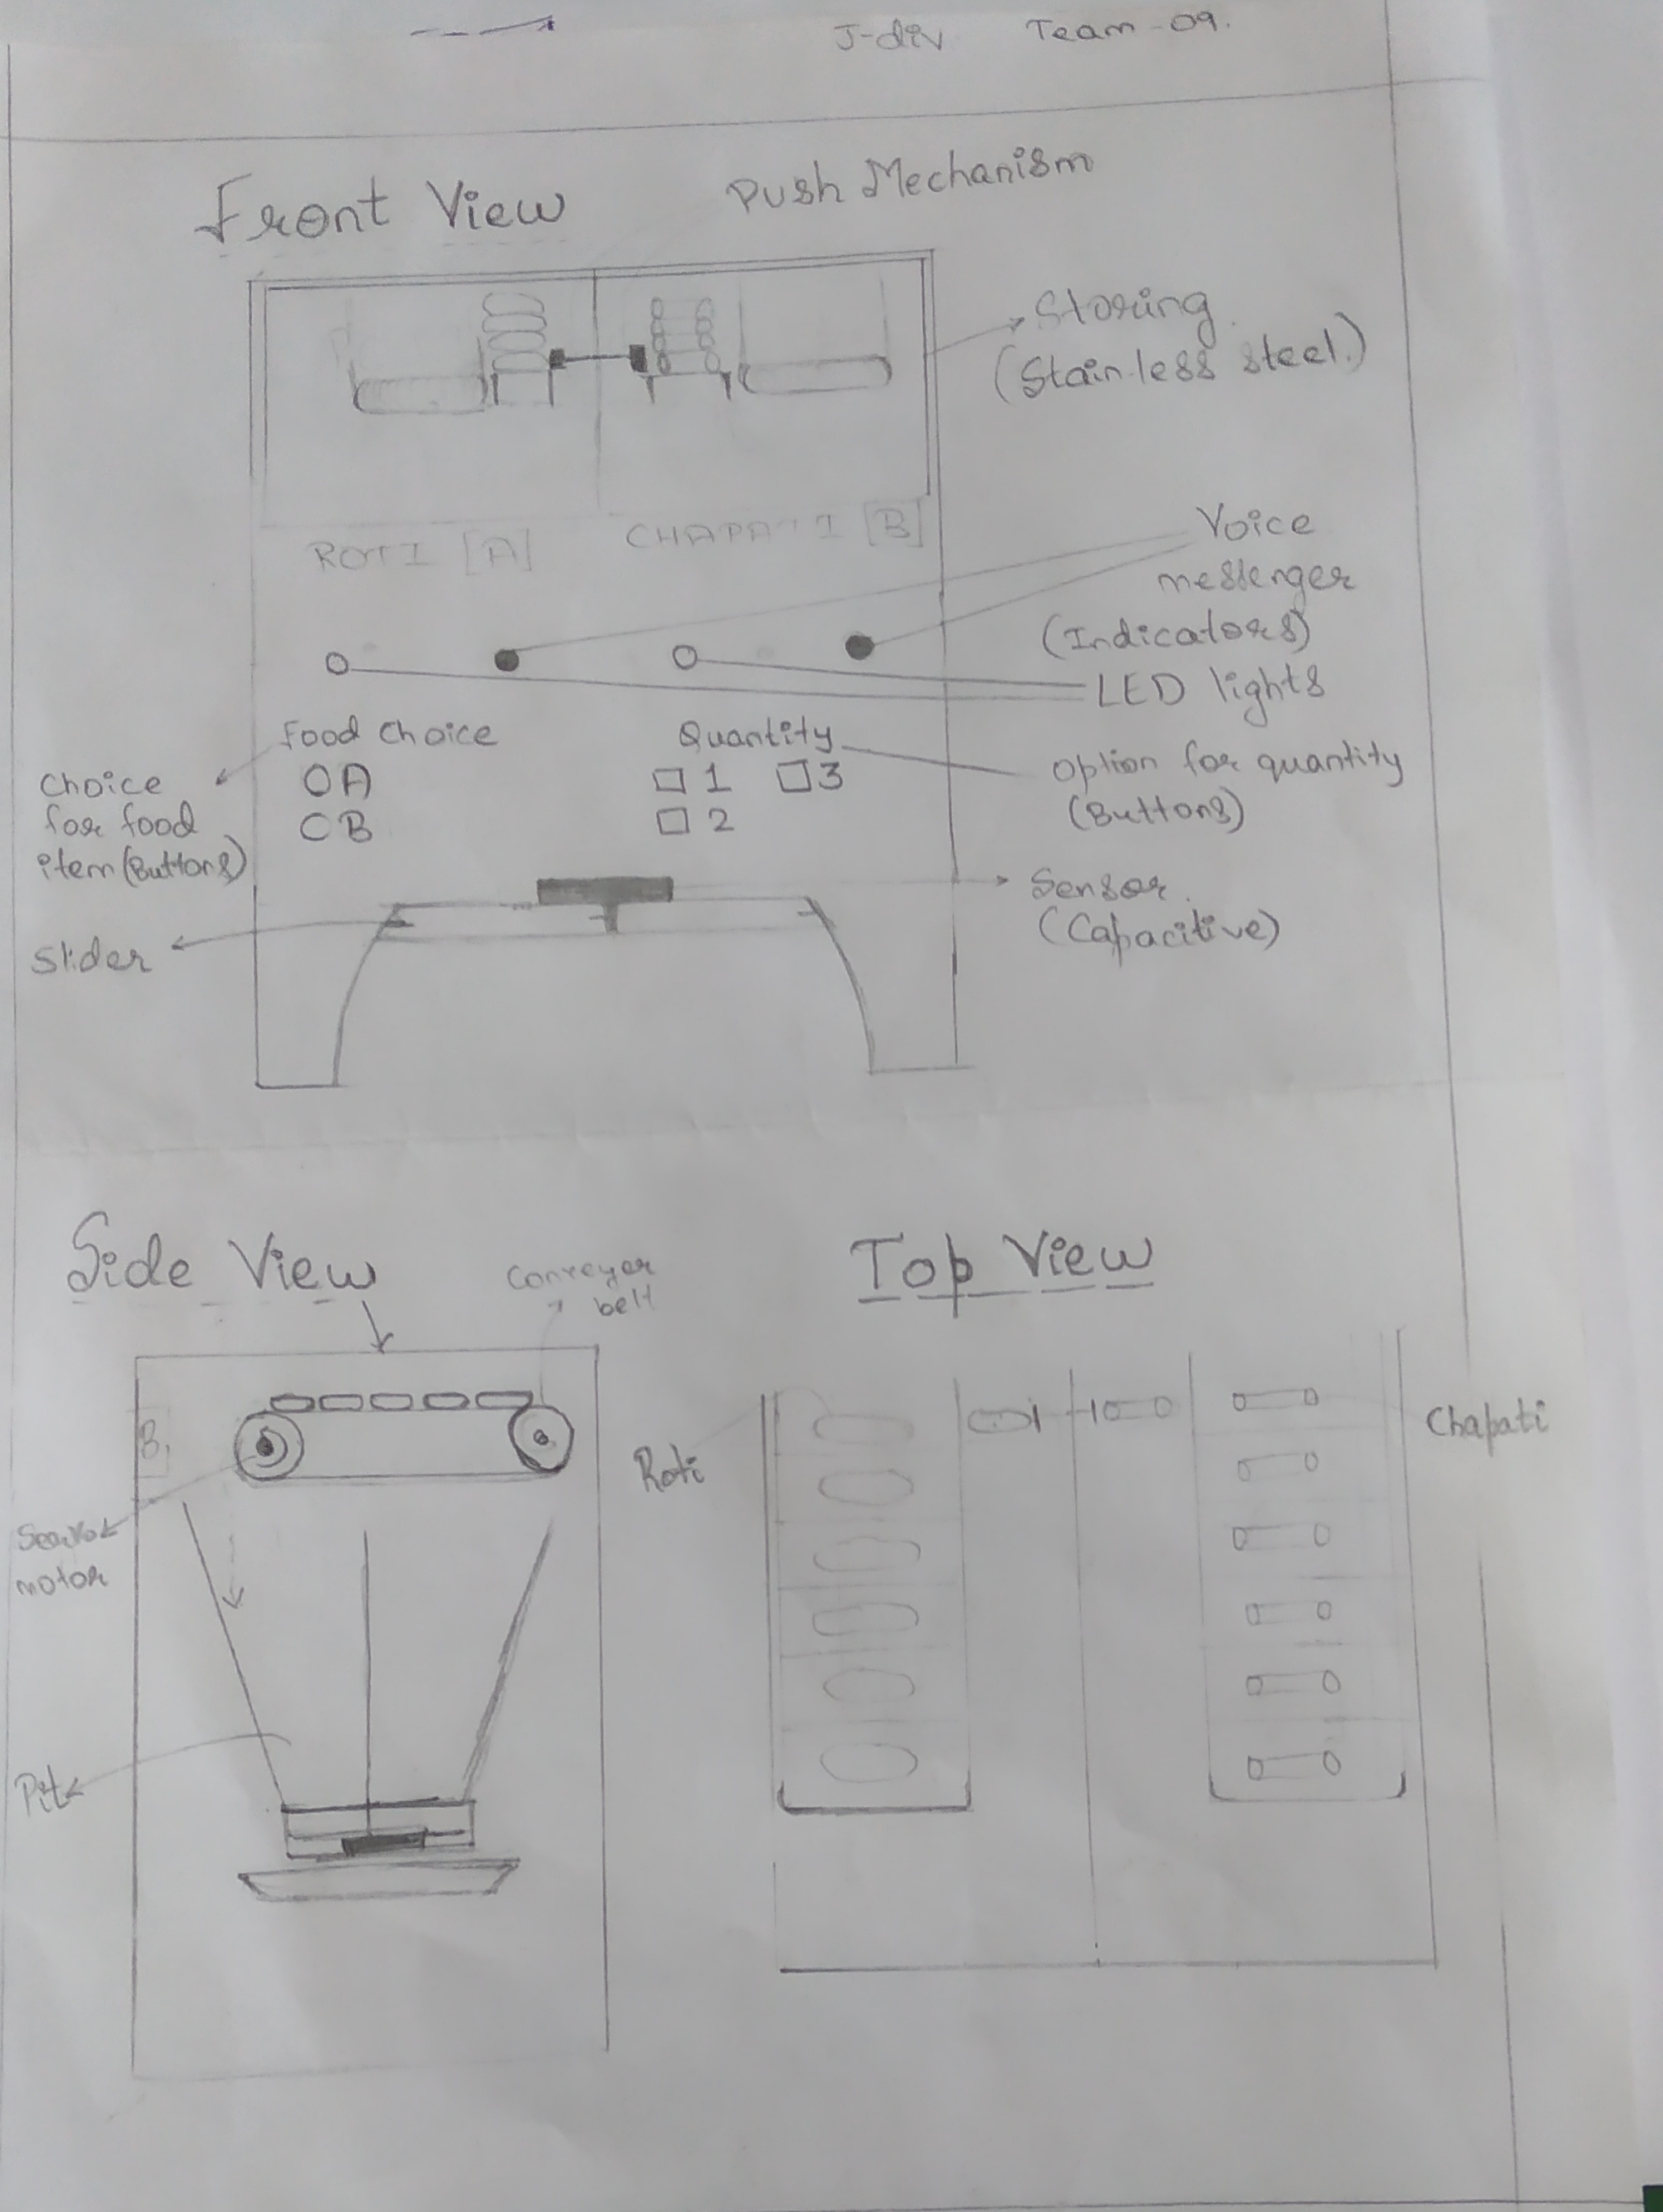 J-div Team-09.
Front View
Push Mechanism
Storing
(Stainless steel.)
ROTI [A]
CHAPATI [B]
Voice
messenger
(Indicators)
LED lights
Food Choice
Quantity
OA
OB
1
3
2
Choice
for food
item (Buttons)
option for quantity
(Buttons)
Sensor.
(Capacitive)
Slider
Side View
Conveyer
belt
Top View
B.
Roti
Chapati
motor
Pit